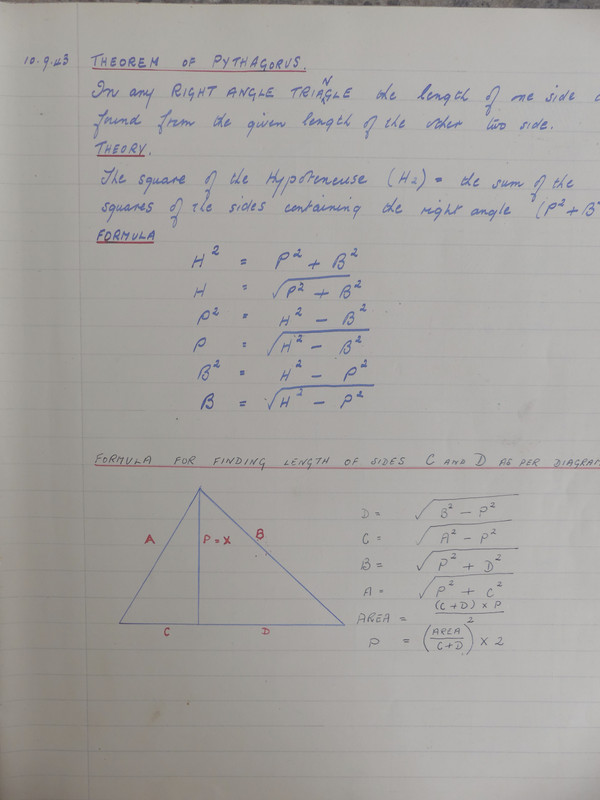 10.9.43 THEOREM OF PYTHAGORUS.
In any RIGHT ANGLE TRIANGLE the length of one side
found from the given length of the other two side.
THEORY.
The square of the Hypoteneuse (H2) = the sum of the
squares of the sides containing the right angle (P² + B²
FORMULA
H² = P² + B²
H = √P² + B²
P² = H² - B²
P = √H² - B²
B² = H² - P²
B = √H² - P²
FORMULA FOR FINDING LENGTH OF SIDES C AND D AS PER DIAGRAM
A
P = X
B
C
D
D = √B² - P²
C = √A² - P²
B = √P² + D²
A = √P² + C²
AREA = (C+D) × P / 2
P = (AREA / C+D) × 2